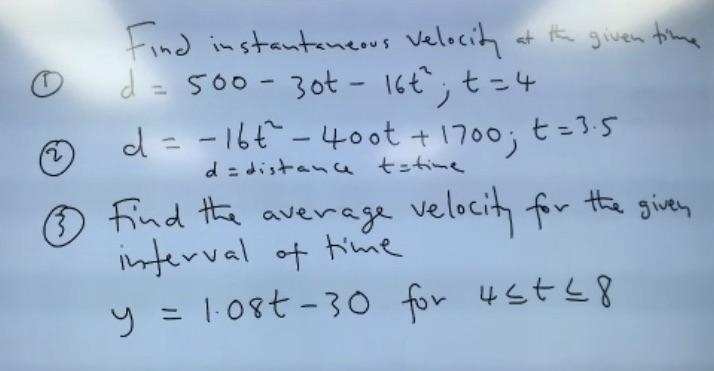 Find instantaneous velocity at the given time
① d = 500 - 30t - 16t², t = 4
② d = -16t² - 400t + 1700; t = 3.5
d = distance t = time
③ Find the average velocity for the given
interval of time
y = 1.08t - 30 for 4 ≤ t ≤ 8